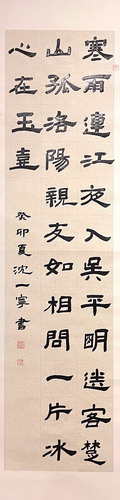 寒雨連江夜入吳平明送客楚
山孤洛陽親友如相問一片冰
心在玉壺
癸卯夏沈一寧書